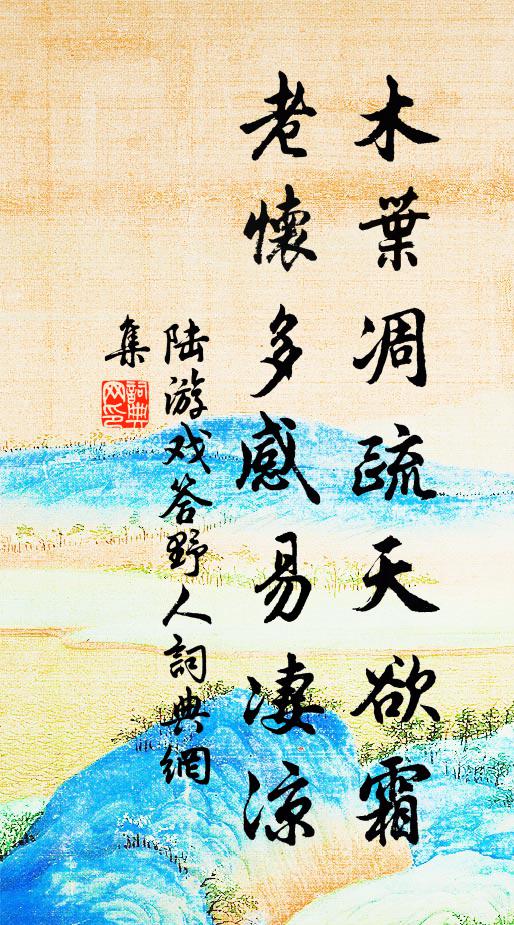 木葉凋疏天欲霜
老懷多感易凄涼
陆游戏答野人詞典網
集
詞典
网印